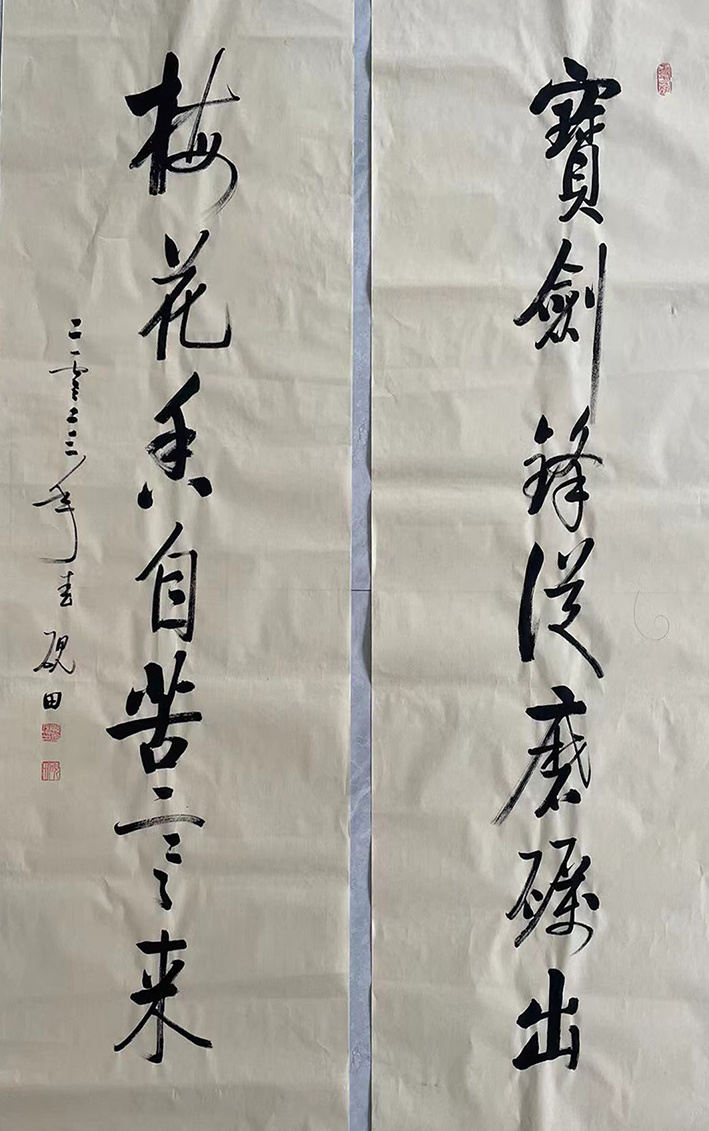 寶劍鋒從磨礪出
梅花香自苦寒来
二零二三年春砚田